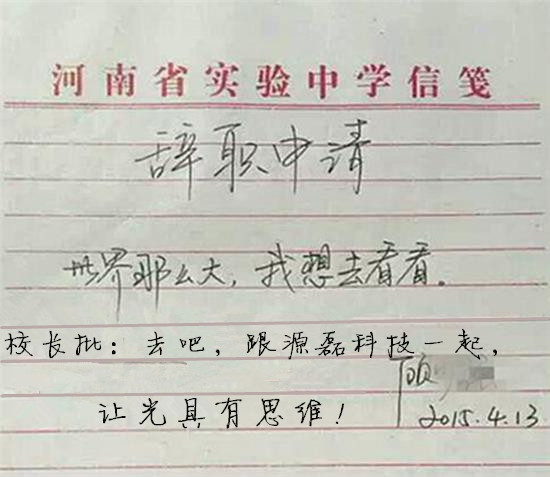 河南省实验中学信笺
辞职申请
世界那么大，我想去看看。
校长批：去吧，跟源磊科技一起，
让光具有思维！
顾
2015.4.13